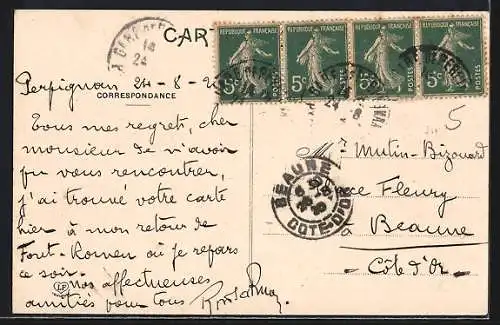 CAR
REPUBLIQUE FRANÇAISE
5c POSTES
REPUBLIQUE FRANÇAISE
5c POSTES
REPUBLIQUE FRANÇAISE
5c POSTES
REPUBLIQUE FRANÇAISE
5c POSTES
Perpignan 24-8-2
CORRESPONDANCE
Tous mes regrets, cher
monsieur de n'avoir
pu vous rencontrer,
j'ai trouvé votre carte
hier à mon retour de
Font-Romeu où je repars
ce soir.
Nos affectueuses
amitiés pour tous
LF
5
M. Mutin-Bizouard
Place Fleury
à Beaune
Côte d'Or
BEAUNE
COTE-D'OR